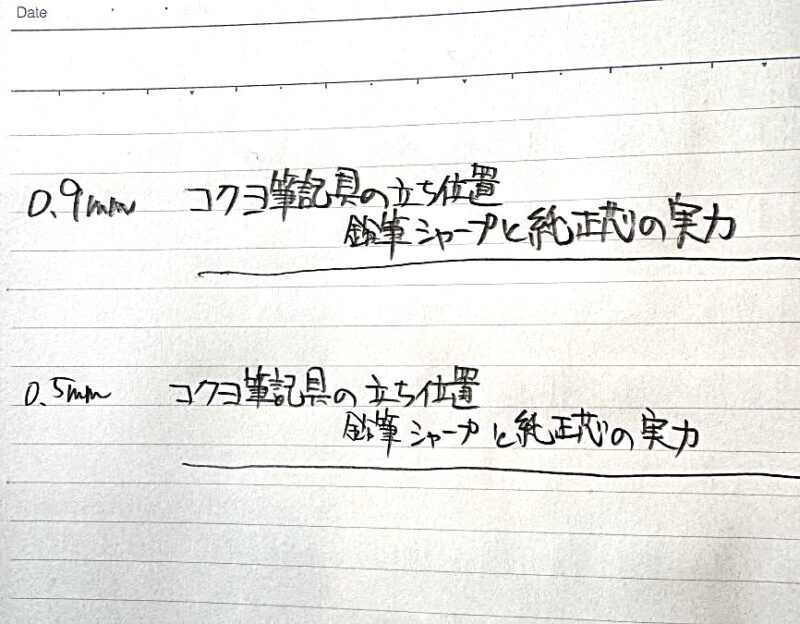 Date
0.9mm コクヨ筆記具の立ち位置
鉛筆シャープと純正芯の実力
0.5mm コクヨ筆記具の立ち位置
鉛筆シャープと純正芯の実力